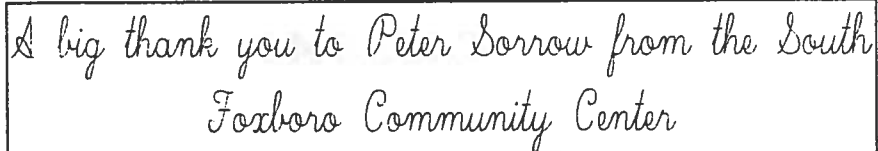 A big thank you to Peter Sorrow from the South
Foxboro Community Center